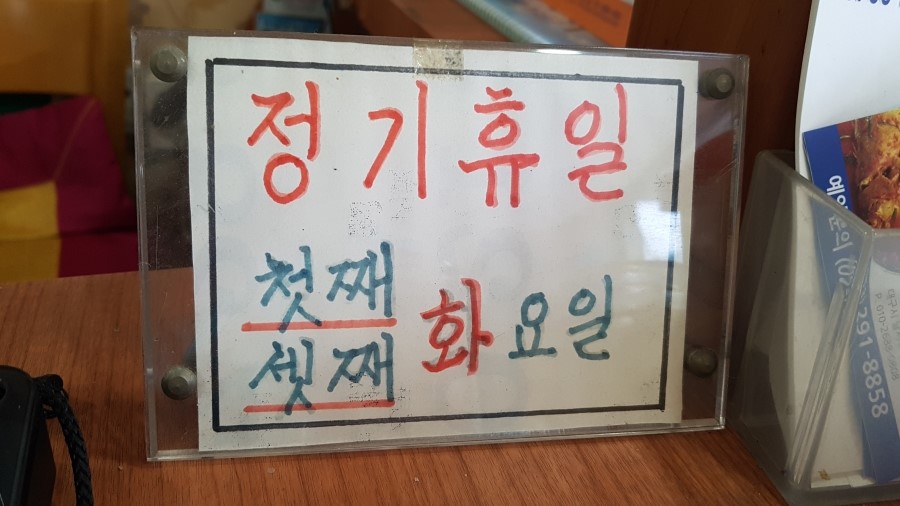 정기휴일
첫째
셋째
화요일
291-8858